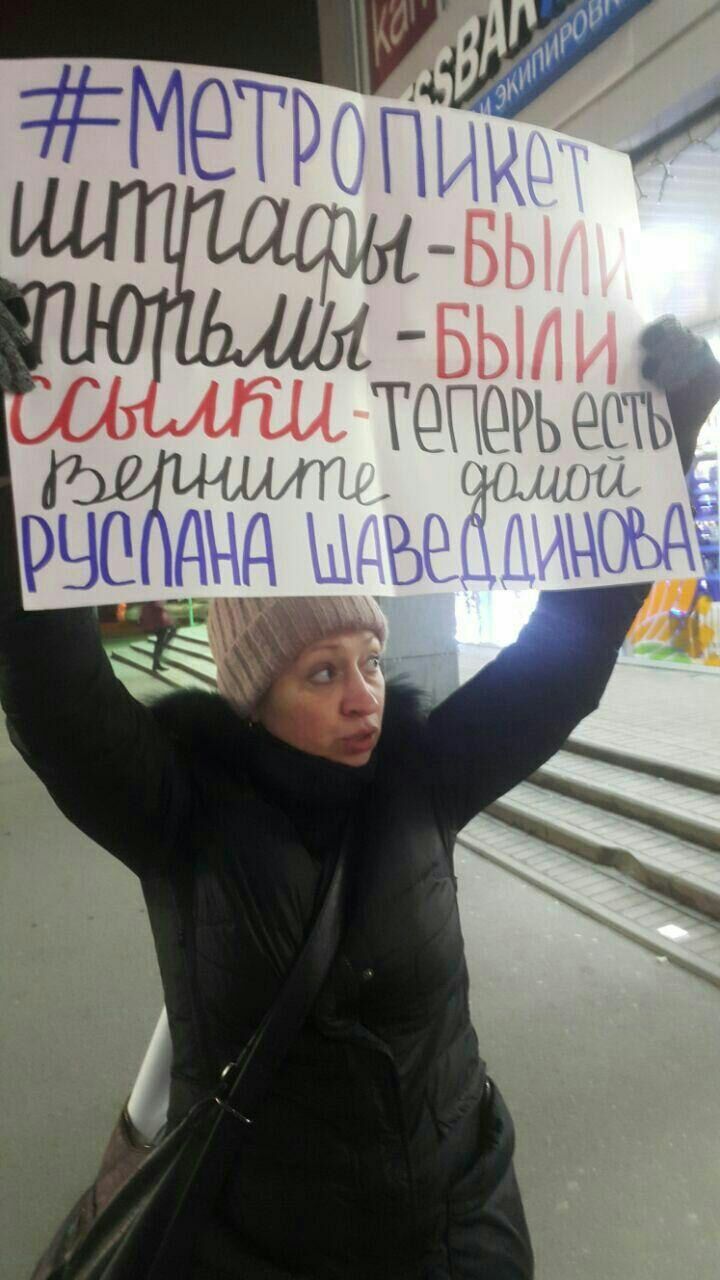 И ЭКИПИРОВК
#МЕТРОПИКЕТ
штрафы - БЫЛИ
тюрьмы - БЫЛИ
ССЫЛКИ - ТЕПЕРЬ ЕСТЬ
Верните домой
РУСЛАНА ШАВЕДДИНОВА